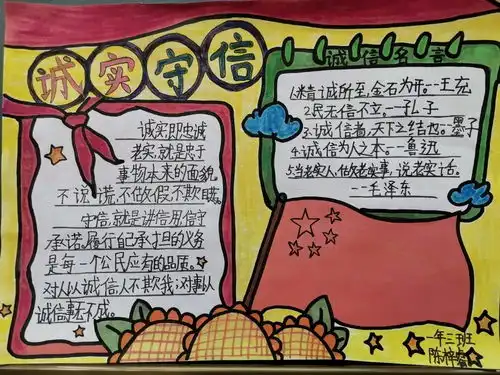 诚实守信
诚实即忠诚
老实,就是忠于
事物本来的面貌
不说谎,不做假,不欺瞒。
守信,就是讲信用,信守
承诺,履行自己承担的义务
是每一个公民应有的品质。
对人以诚信人不欺我;对事以
诚信事无不成。
诚信名言
1.精诚所至,金石为开。—王充
2.民无信不立。—孔子
3.诚信者,天下之结也。墨子
4.诚信为人之本。—鲁迅
5.当老实人,做老实事,说老实话。
—毛泽东
一年三班
陈梓